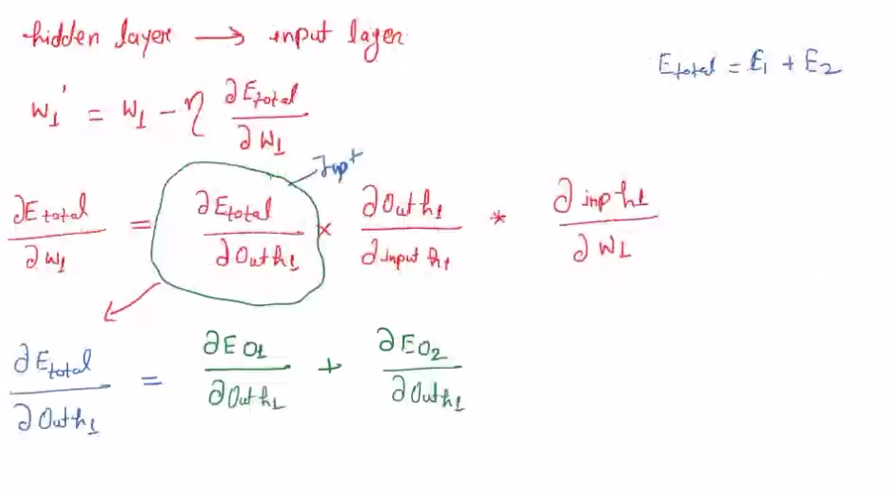 hidden layer → input layer
E_total = E_1 + E_2
W_1' = W_1 - η ∂E_total / ∂W_1
Impt
∂E_total / ∂W_1 = ∂E_total / ∂Out h_1 × ∂Out h_1 / ∂input h_1 * ∂inp h_1 / ∂W_1
∂E_total / ∂Out h_1 = ∂E O_1 / ∂Out h_1 + ∂E O_2 / ∂Out h_1